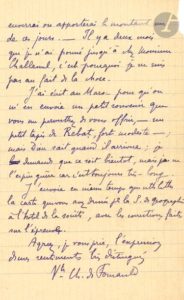 enverrai ou apporterai le montant un
de ces jours. — Il y a deux mois
que je n'ai pensé jusqu'à
, c'est pourquoi je ne suis
pas au fait de la chose.
J'ai écrit au Maroc pour qu'on
m'en envoie un petit souvenir que
vous me permettrez de vous offrir, — un
petit tapis de Rabat, fort modeste, —
mais Dieu sait quand il arrivera ; je
demande que ce soit bientôt, mais je ne
l'espère guère car c'est toujours très long.
J'envoie en même temps que cette lettre
la carte que vous avez demandée pr la S. de géographie
à l'hôtel de la société, avec les corrections faites
sur l'épreuve.
Agréez, je vous prie, l'expression
de mes sentiments les plus distingués
Vte Ch. de Foucauld